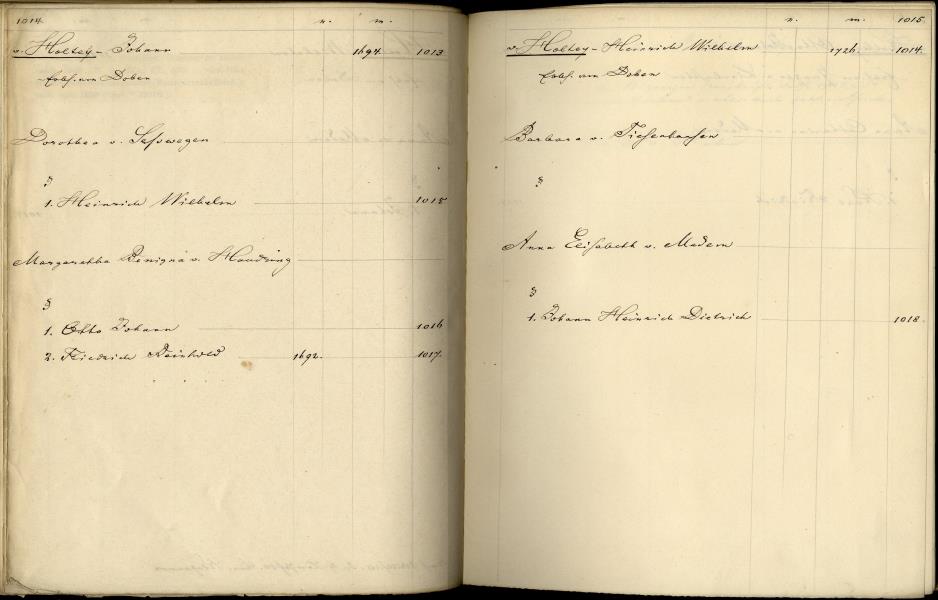 1014. n. m.
v. Holtey - Johann 1694. 1013
Erbh. von Doben
Dorothea v. Sesswegen
1. Heinrich Wilhelm 1015
Margaretha Benigna v. Haudring
1. Otto Johann 1016
2. Friedrich Reinhold 1692. 1017.
n. m. 1015.
v. Holtey - Heinrich Wilhelm 1726. 1014.
Erbh. von Doben
Barbara v. Tiesenhausen
Anna Elisabeth v. Medem
1. Johann Heinrich Dietrich 1018.